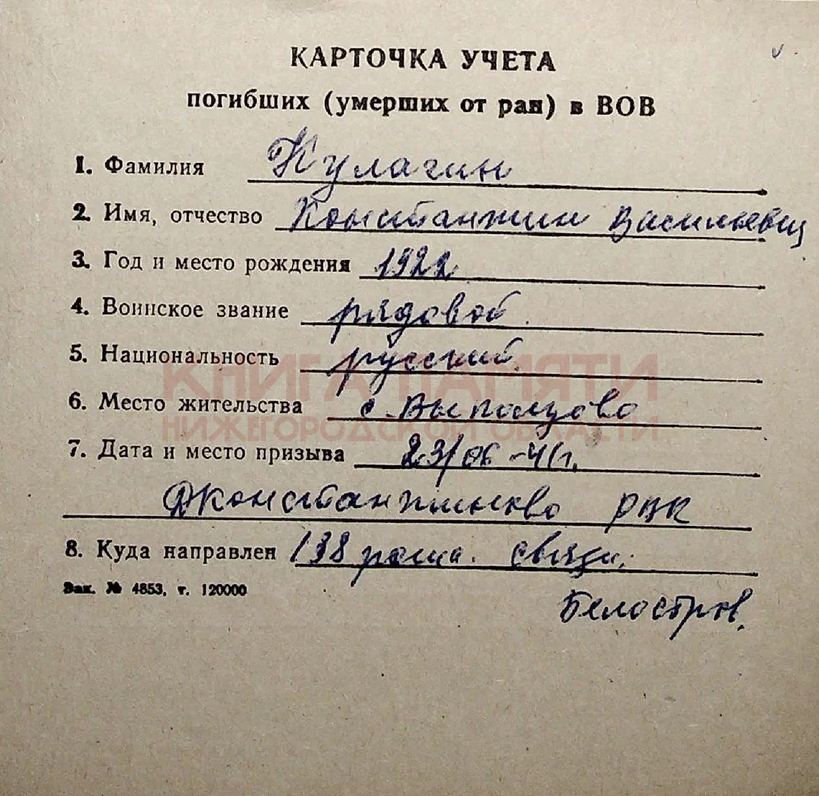 КАРТОЧКА УЧЕТА
погибших (умерших от ран) в ВОВ
1. Фамилия Кулагин
2. Имя, отчество Константин Васильевич
3. Год и место рождения 1922
4. Воинское звание рядовой.
5. Национальность русский.
КНИГА ПАМЯТИ
6. Место жительства с. Выползово
НИЖЕГОРОДСКОЙ ОБЛАСТИ
7. Дата и место призыва 23/06-41г.
Дконстантиново РВК
8. Куда направлен 138 связи.
Зак. № 4853, т. 120000
Белостров.